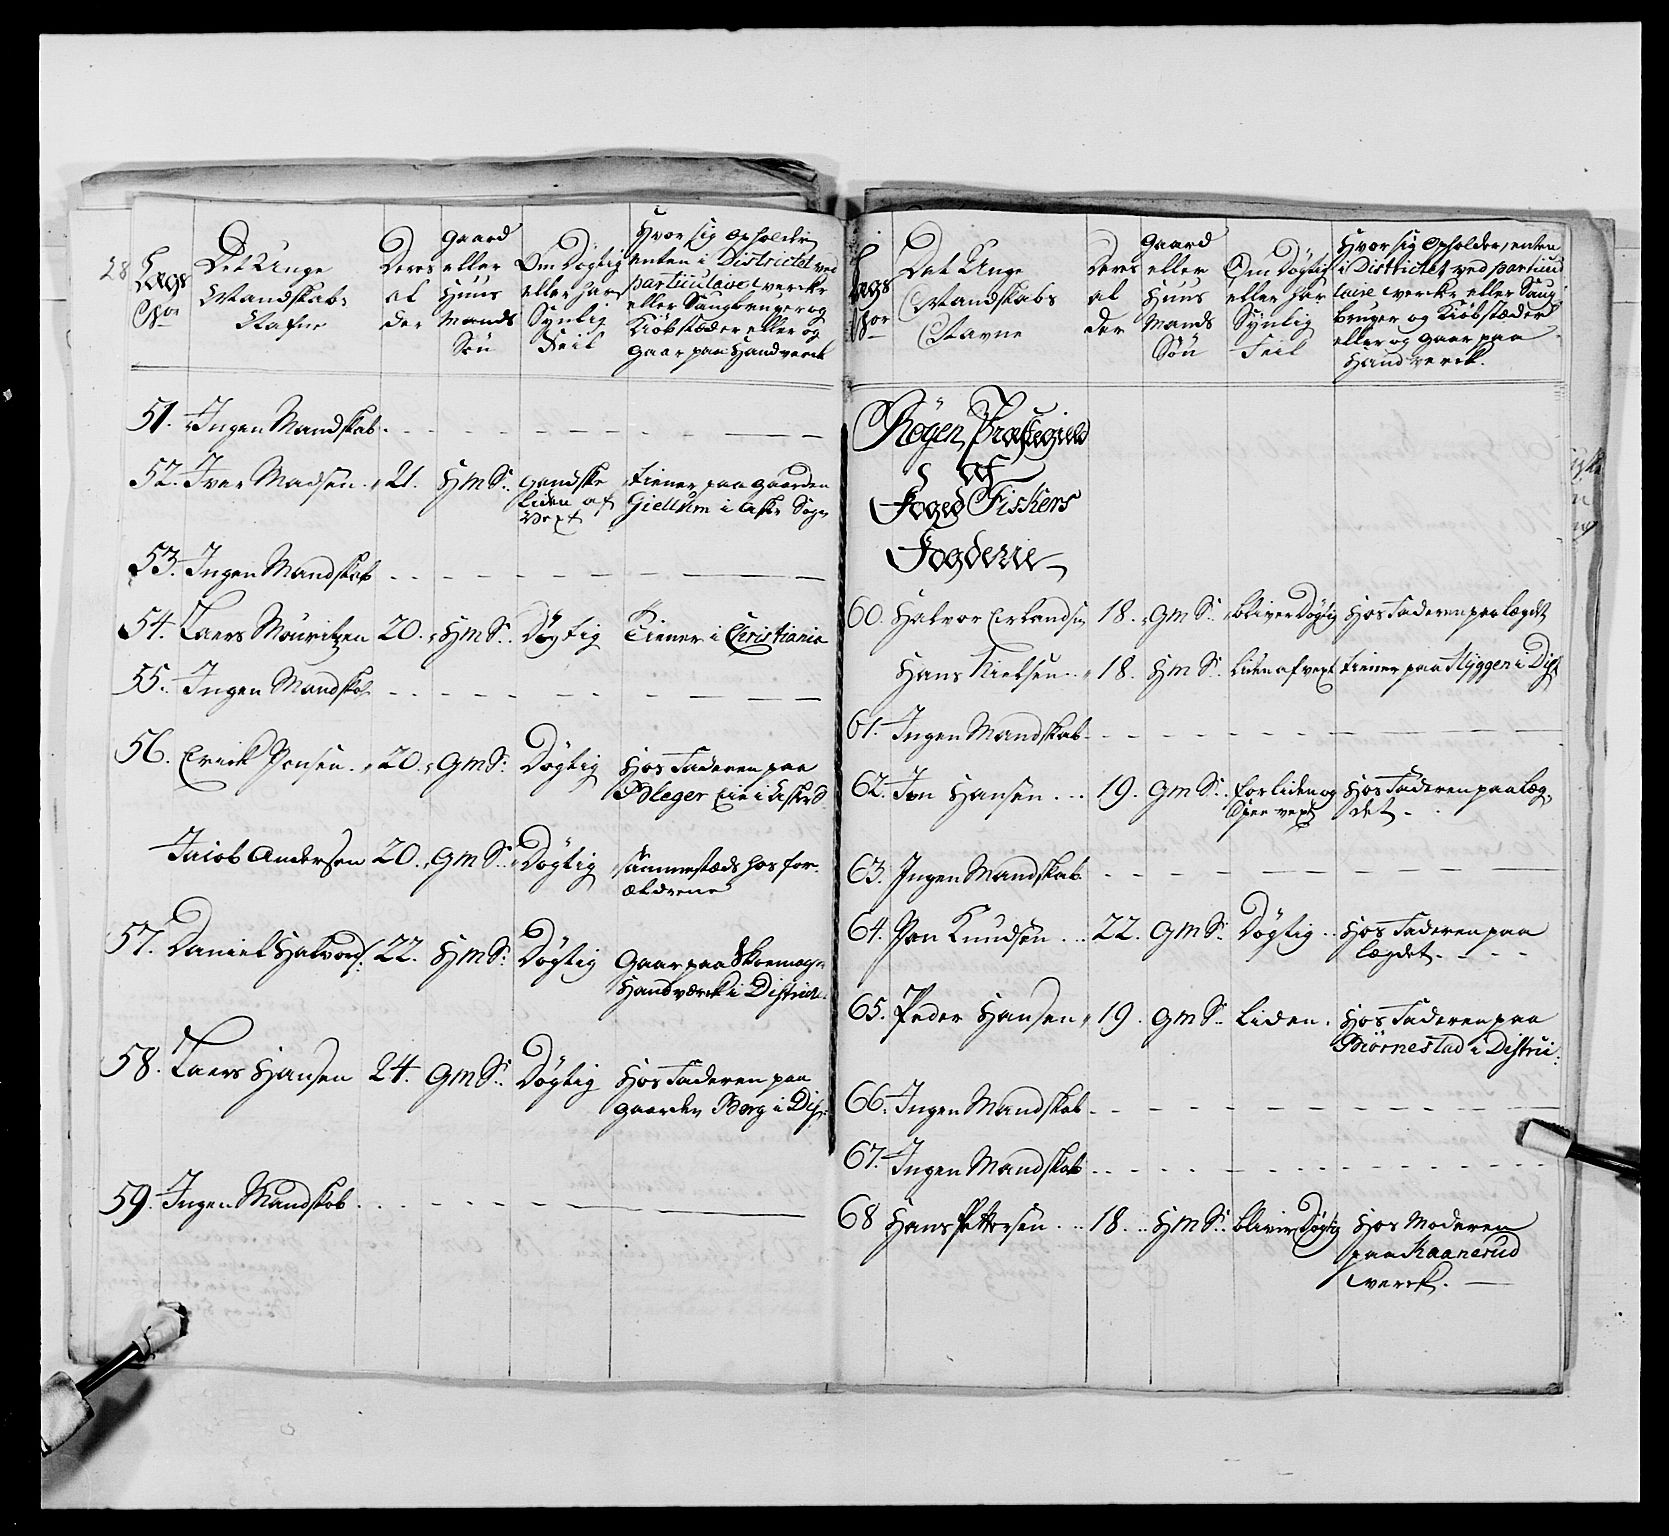 28
Lægs
No
Det Unge
Mandskabs
Nafne
Deres
al
der
Gaard
eller
Huus
Mands
Søn
Om Døgtig
eller har
Synlig
Feil
Hvor sig opholder
enten i Districtet ved
particulaire verker
eller Saugbruger og
Kiøbstæder eller og
gaar paa Handverck
51. Ingen Mandskab
52. Iver Madsen 21. HmS. gandske liden af Vext Tiener paa gaarden
Giellum i Asker Sogn
53. Ingen Mandskab
54. Laers Mouritzen 20. HmS. Døgtig Tiener i Christiania
55. Ingen Mandskab
56. Erick Jonsen 20. GmS. Døgtig Hos Faderen paa
Bleger Eie i
Jacob Andersen 20. GmS. Døgtig sammestæds hos for-
ældrene
57. Daniel Halvors: 22. HmS. Døgtig Gaar paa Skoemager
Handværck i District
58. Laers Hansen 24. GmS. Døgtig Hos Faderen paa
gaarden Berg i Dist:
59. Ingen Mandskab
Lægs
No
Det Unge
Mandskabs
Navne
Deres
al
der
Gaard
eller
Huus
Mands
Søn
Om Døgtig
eller har
Synlig
Feil
Hvor sig opholder, enten
i Districtet ved particu
laire verker eller Saug
bruger og Kiøbstæder
eller og gaar paa
Handverck.
Røgen Præstegield
af
Foged Fiskers
Fogderie
60. Halvor Erlandsen 18. GmS. bliver Døgtig Hos Faderen paa lægdet
Hans Nielsen 18. HmS. Liden af vext tiener paa Hyggen i Dist
61. Ingen Mandskab
62. Jon Hansen 19. GmS. for liden og
Spee vext Hos Faderen paa læg-
det
63. Ingen Mandskab
64. Jon Knudsen 22. GmS. Døgtig Hos Faderen paa
lægdet
65. Peder Hansen 19. GmS. Liden. Hos Faderen paa
Biørnestad i Distric:
66. Ingen Mandskab
67. Ingen Mandskab
68 Hans Pettersen 18. HmS. bliver Døgtig Hos Moderen
paa Kaanerud
verck.